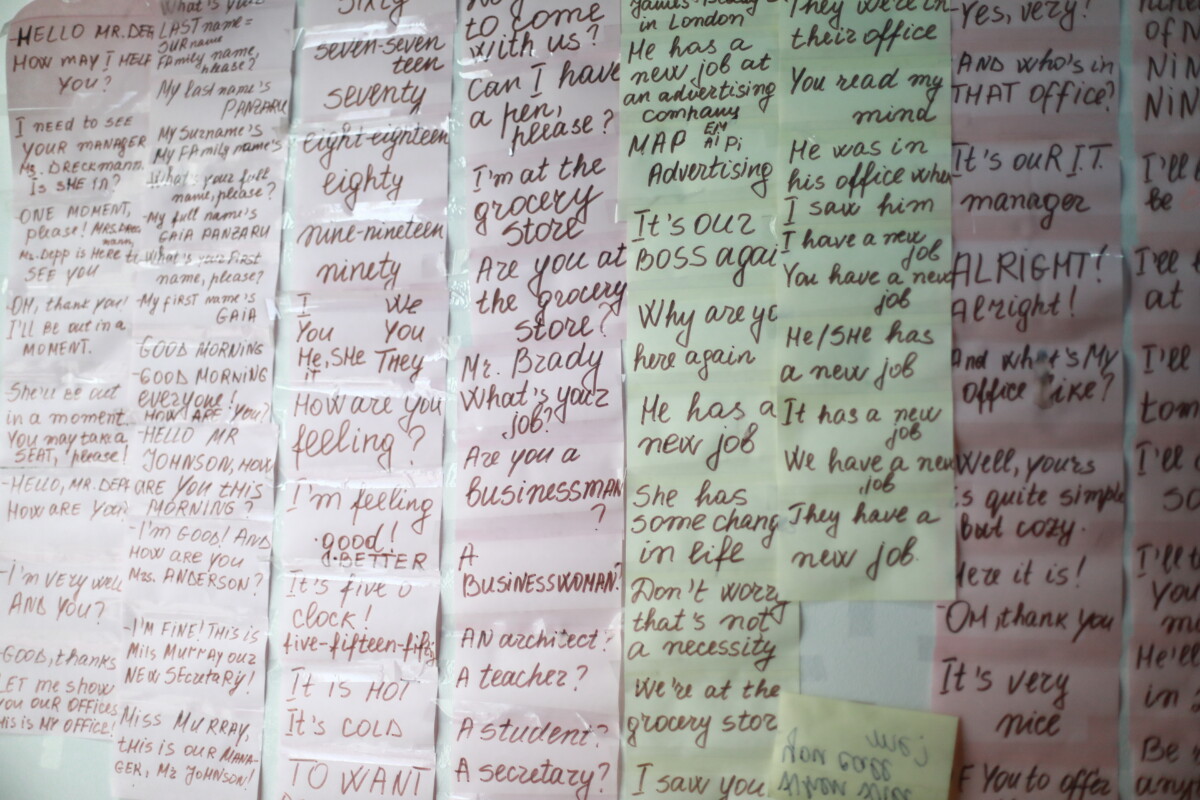 HELLO MR. DEPP
HOW MAY I HELP
YOU?
I need to SEE
YOUR MANAGER
Ms. DRECKMANN.
Is SHE IN?
ONE MOMENT,
please! MRS. DREC
mann,
Mr. Depp is HERE to
SEE YOU
-OH, thank you!
I'll BE out in a
MOMENT.
She'll BE out
in a moment.
You may take a
SEAT, please!
-HELLO, MR. DEPP
HOW ARE YOU?
-I'm very well
AND YOU?
-GOOD, thanks
LET me show
you OUR OFFICES
THIS IS MY OFFICE!
What is your
LAST name =
SURname
FAmily name,
please?
My last name's
PANZARU
My Surname's
My FAmily name's
What's your full
name, please?
-My full name's
GAIA PANZARU
What's your First
name, please?
-My first name's
GAIA
GOOD MORNING
-GOOD MORNING
everyone!
HOW ARE YOU?
-HELLO MR
JOHNSON, HOW
ARE YOU THIS
MORNING?
-I'm GOOD! AND
HOW ARE YOU
Mrs. ANDERSON?
-I'M FINE! THIS IS
Miss MURRAY OUR
NEW SECRetaRy!
Miss MURRAY,
tHIS IS OUR MANA-
GER, Mr JOHNSON!
sixty
seven-seven
teen
seventy
eight-eighteen
eighty
nine-nineteen
ninety
I We
You You
He, SHe They
iT
How are you
feeling?
I'm feeling
good!
BETTER
It's five o
clock!
five-fifteen-fifty
IT IS HOT
It's COLD
TO WANT
to come
with us?
Can I have
a pen,
please?
I'm at the
grocery
store
Are you at
the grocery
store?
Mr. Brady
What's your
job?
Are you a
BusinessMAN
?
A
BUSINESSWOMAN?
AN architect?
A teacher?
A student?
A secretary?
James Brady
in London
He has a
new job at
an advertising
company
MAP EM
AI Pi
Advertising
It's OUR
BOSS agai
Why are yo
here again
He has a
new job
She has
some chang
in life
Don't worry
that's not
a necessity
We're at the
grocery stor
I saw you
They were in
their office
You read my
mind
He was in
his office when
I saw him
I have a new
job
You have a new
job
He/SHe has
a new job
It has a new
job
We have a new
job
They have a
new job.
Yes, very!
AND who's in
THAT office?
It's ouR I.T.
manager
ALRIGHT!
Alright!
And what's My
office like?
Well, yours
is quite simple
But cozy.
Here it is!
-OH, thank you
It's very
nice
F You to offer
nine
of N
NiN
NiN
I'll
be
I'll
at
I'll
tom
I'll
so
I'll
you
mo
He'll
in
Be
any